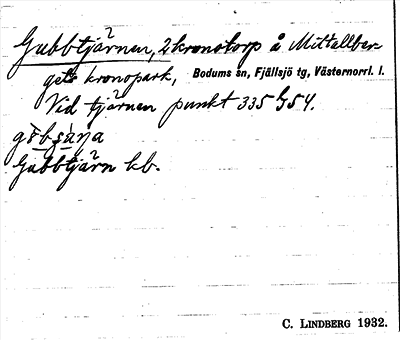 Gubbtjärnen, 2 kronotorp å Mittallber-
gets kronopark, Bodums sn, Fjällsjö tg, Västernorrl. l.
Vid tjärnen punkt 335 G54.
Gubbtjärn kb.
C. LINDBERG 1932.